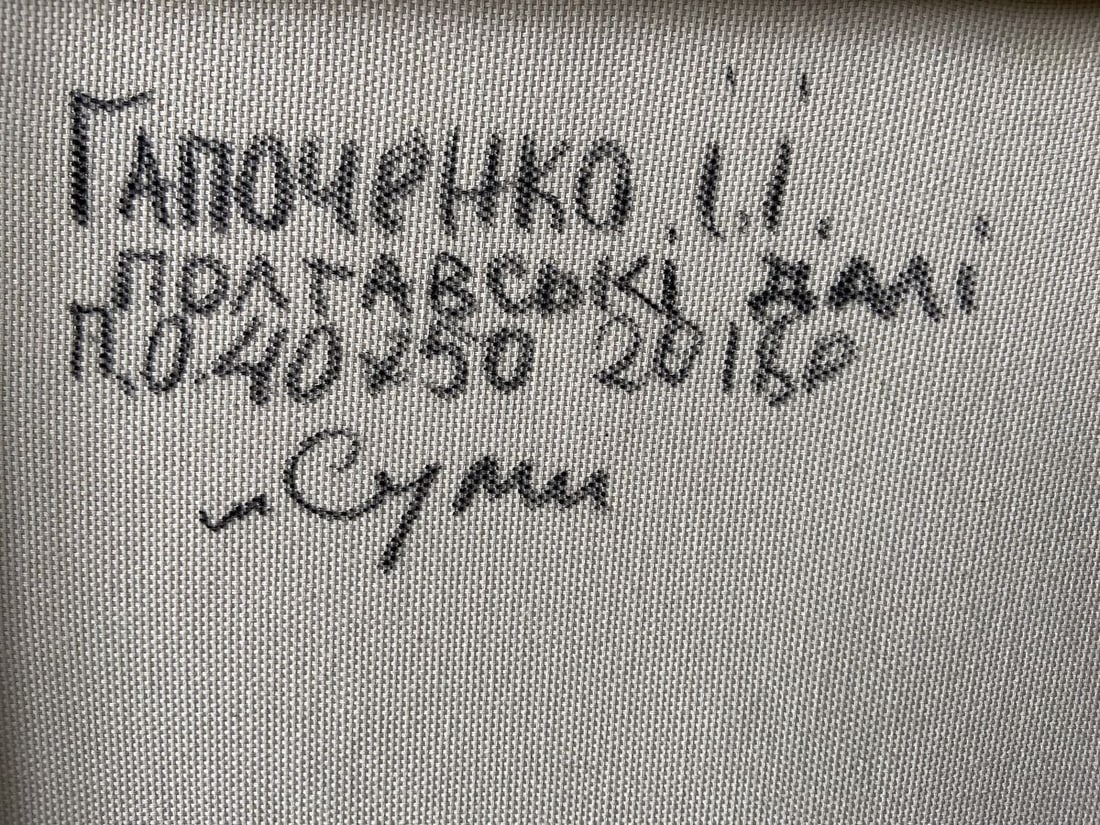 Гапоченко. І.І.
Полтавські далі
П.О. 40х50 2018р
м Суми